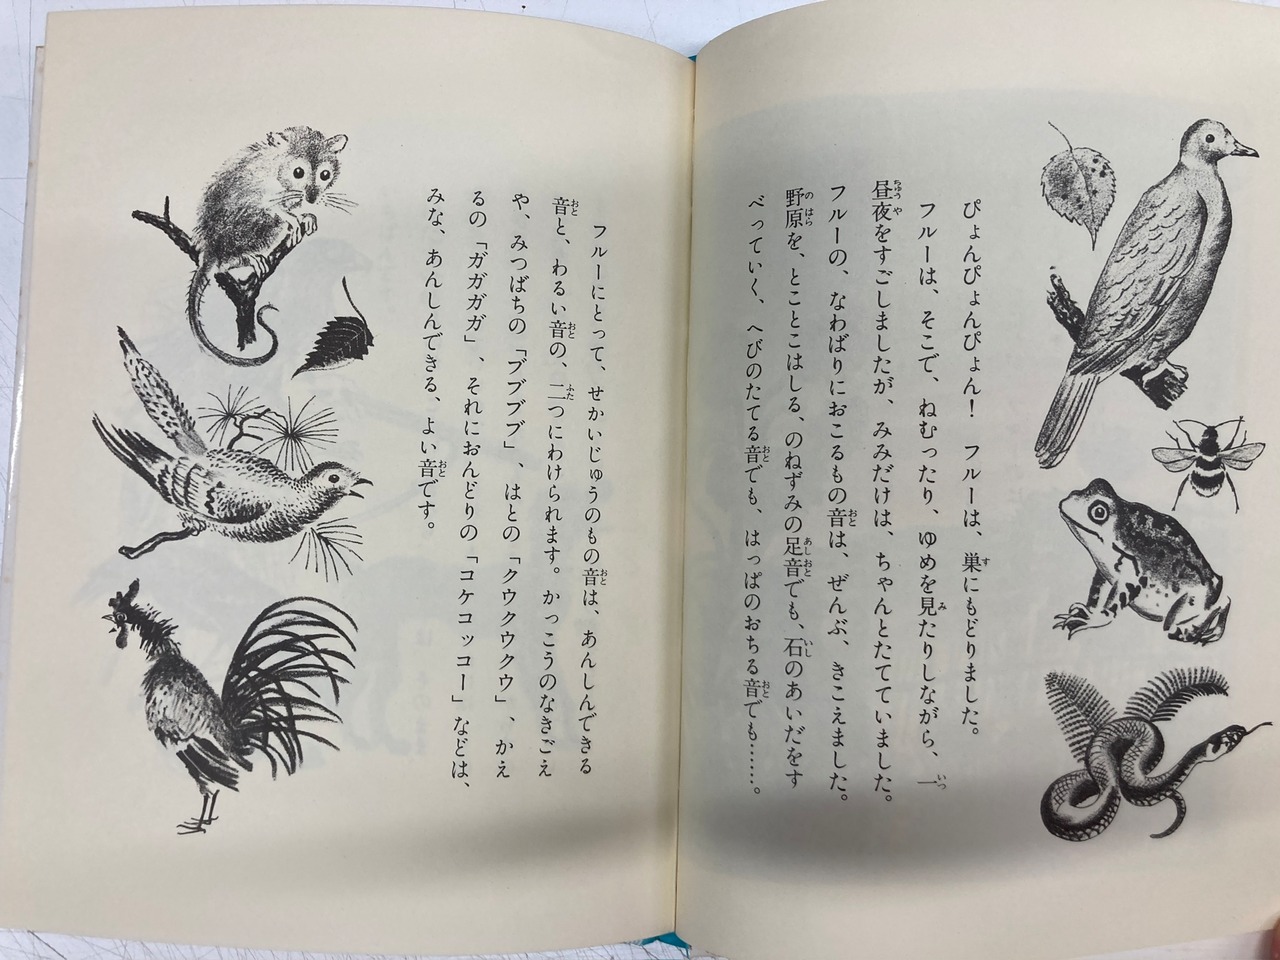 ぴょんぴょんぴょん！　フルーは、巣にもどりました。
フルーは、そこで、ねむったり、ゆめを見たりしながら、一
昼夜をすごしましたが、みみだけは、ちゃんとたてていました。
フルーの、なわばりにおこるもの音は、ぜんぶ、きこえました。
野原を、とことこはしる、のねずみの足音でも、石のあいだをす
べっていく、へびのたてる音でも、はっぱのおちる音でも……。
フルーにとって、せかいじゅうのもの音は、あんしんできる
音と、わるい音の、二つにわけられます。かっこうのなきごえ
や、みつばちの「ブブブブ」、はとの「クウクウクウ」、かえ
るの「ガガガガ」、それにおんどりの「コケコッコー」などは、
みな、あんしんできる、よい音です。